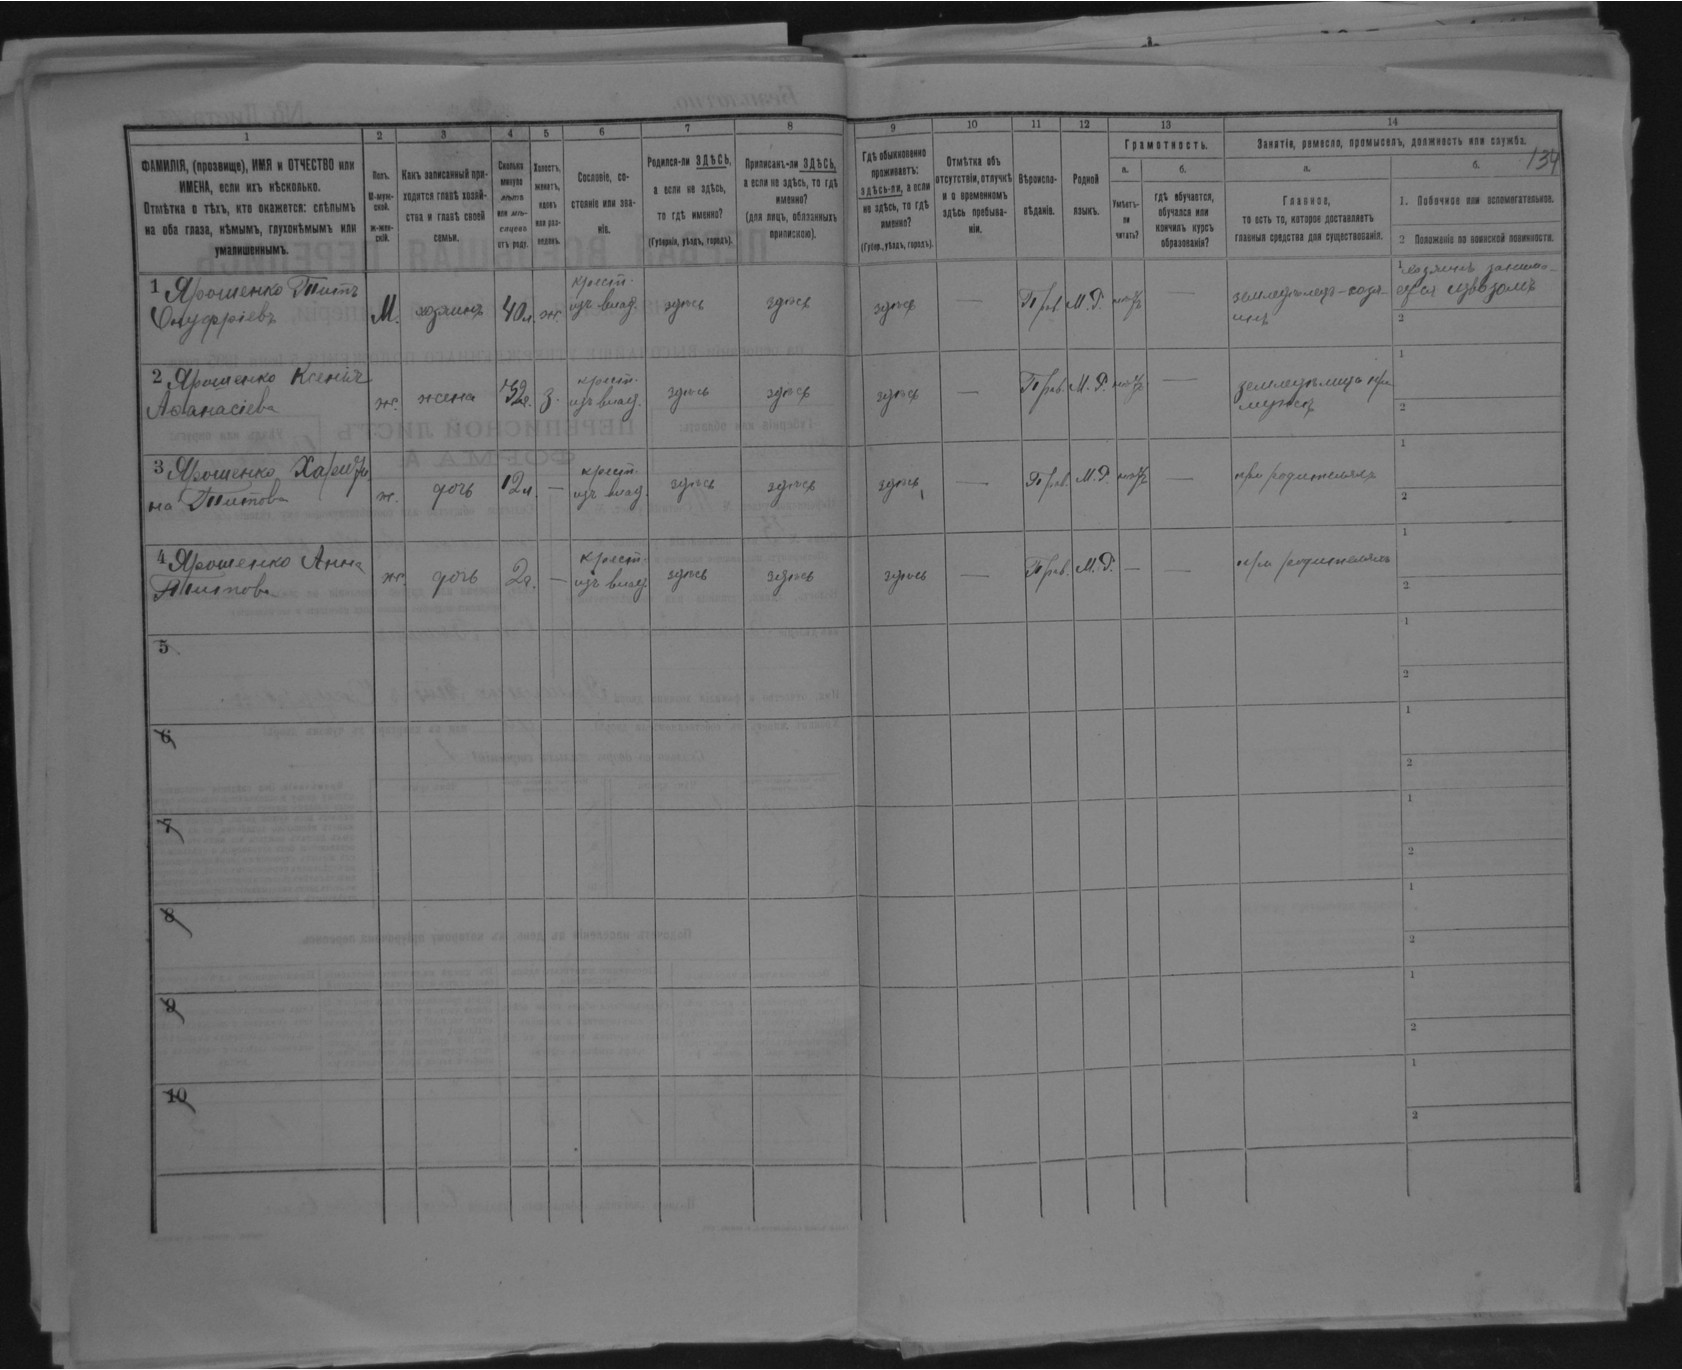 1
2
3
4
5
6
7
8
9
10
11
12
13
14
134
ФАМИЛІЯ, (прозвище), ИМЯ и ОТЧЕСТВО или
ИМЕНА, если ихъ нѣсколько.
Отмѣтка о тѣхъ, кто окажется: слѣпымъ
на оба глаза, нѣмымъ, глухонѣмымъ или
умалишеннымъ.
Полъ.
М-муж-
ской.
ж-жен-
скій.
Какъ записанный при-
ходится главѣ хозяй-
ства и главѣ своей
семьи.
Сколько
минуло
лѣтъ
или мѣ-
сяцевъ
отъ роду.
Холостъ,
женатъ,
вдовъ
или раз-
веденъ.
Сословіе, со-
стояніе или зва-
ніе.
Родился-ли ЗДѢСЬ,
а если не здѣсь,
то гдѣ именно?
(Губернія, уѣздъ, городъ).
Приписанъ-ли ЗДѢСЬ,
а если не здѣсь, то гдѣ
именно?
(для лицъ, обязанныхъ
припискою).
Гдѣ обыкновенно
проживаетъ:
здѣсь-ли, а если
не здѣсь, то гдѣ
именно?
(Губер., уѣздъ, городъ).
Отмѣтка объ
отсутствіи, отлучкѣ
и о временномъ
здѣсь пребыва-
ніи.
Вѣроиспо-
вѣданіе.
Родной
языкъ.
Грамотность.
а.
Умѣетъ-
ли
читать?
б.
гдѣ обучается,
обучался или
кончилъ курсъ
образованія?
Занятіе, ремесло, промыселъ, должность или служба.
а.
Главное,
то есть то, которое доставляетъ
главныя средства для существованія.
б.
1. Побочное или вспомогательное.
2 Положеніе по воинской повинности.
1 Ярошенко Титъ
Онуфріевъ
М.
хозяинъ
40 л.
ж.
крест.
изъ влад.
здѣсь
здѣсь
здѣсь
—
Прав.
М. Р.
нѣтъ
—
земледѣлецъ-хозя-
инъ
1 хозяинъ занима-
ется извозомъ
2
2 Ярошенко Ксенія
Афанасіева
ж.
жена
з.
крест.
изъ влад.
здѣсь
здѣсь
здѣсь
—
Прав.
М. Р.
нѣтъ
—
земледѣлица при
мужѣ
1
2
3 Ярошенко Харити-
на Титова
ж.
дочь
12 л.
—
крест.
изъ влад.
здѣсь
здѣсь
здѣсь
—
Прав.
М. Р.
нѣтъ
—
при родителяхъ
1
2
4 Ярошенко Анна
Титова
ж.
дочь
2 г.
—
крест.
изъ влад.
здѣсь
здѣсь
здѣсь
—
Прав.
М. Р.
—
—
при родителяхъ
1
2
5
1
2
6
1
2
7
1
2
8
1
2
9
1
2
10
1
2